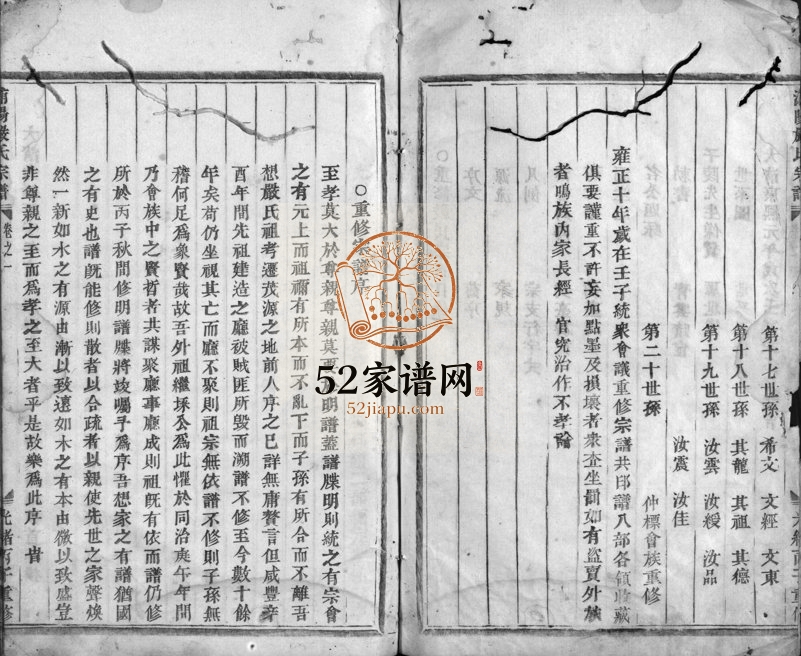 第十七世孫 希文 文經 文東
第十八世孫 其龍 其祖 其德
第十九世孫 汝雲 汝綬 汝品
汝震 汝佳
第二十世孫 仲標會族重修
雍正十年歲在壬子統衆會議重修宗譜共印譜八部各領收藏
俱要謹重不許妄加點墨及損壞者衆查坐罰如有盜賣外族
者鳴族內家長經 官究治作不孝論
嚴氏宗譜
卷之一
光緒丙子重修
○重修宗譜序
至孝莫大於尊親尊親莫 明譜蓋譜牒明則統之有宗會
之有元上而祖禰有所本而不亂下而子孫有所合而不離吾
想嚴氏祖考遷茂源之地前人序之已詳無庸贅言但咸豐辛
酉年間先祖建造之廳被賊匪所毀而溯譜不修至今數十餘
年矣苟仍坐視其亡而廳不聚則祖宗無依譜不修則子孫無
稽何足爲衆賢哉故吾外祖繼採公爲此懼於同治庚午年間
乃會族中之賢哲者共謀聚廳事廳成則祖旣有依而譜仍修
所於丙子秋間修明譜牒將竣囑予爲序吾想家之有譜猶國
之有史也譜旣能修則散者以合疏者以親使先世之家聲煥
然一新如木之有源由漸以致遠如木之有本由微以致盛豈
非尊親之至而爲孝之至大者乎是故樂爲此序 旹
52家谱网
52jiapu.com